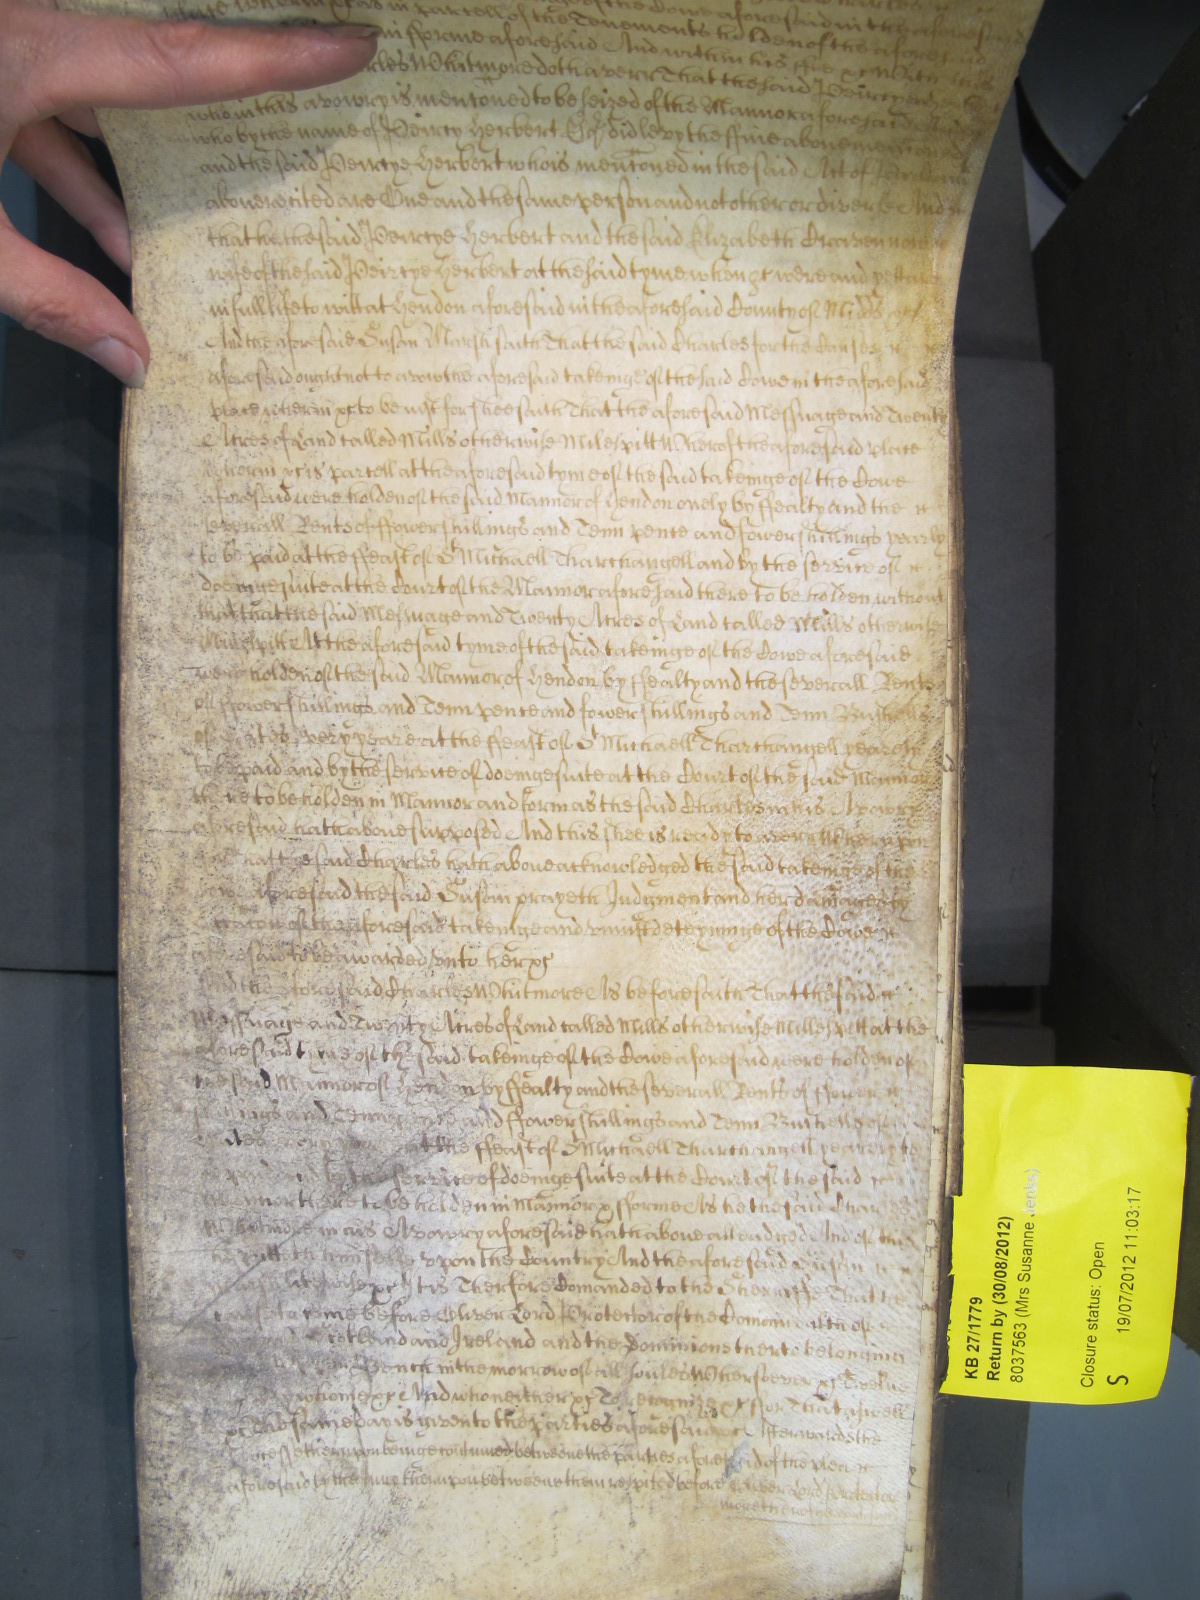 in parcell of the Tenements holden of the aforesaid
in fforme aforesaid And with this
Charles Whitmore doth averr That the said Peircye
who in this avowry is mentoned to be seized of the Mannor aforesaid
who by the name of Peircy Herbert Esqr did levy the ffine above mentoned
and the said Peircye Herbert who is mentoned in the said Act of
above recited are One and the same person and not other or divers And
that he the said Peircye Herbert and the said Elizabeth Craven now
wife of the said Peircye Herbert at the said tyme when &c were and yett are
in full life to witt at Hendon aforesaid in the aforesaid County of Midds
And the aforesaid Susan Marsh saith That the said Charles for the Causes
aforesaid ought not to avow the aforesaid takeinge of the said Cowe in the aforesaid
place wherin &c to be just for shee saith That the aforesaid Messuage and Twenty
Acres of Land called Mills otherwise Milespitt Wherof the aforesaid place
wherin &c is parcell at the aforesaid tyme of the said takeinge of the Cowe
aforesaid were holden of the said Mannor of Hendon onely by ffealty and the
severall Rents of ffower shillings and Tenn pence and fower shillings yearly
to be paid at the ffeast of St Michaell Tharchangell and by the service of
doeinge suite at the Court of the Mannor aforesaid there to be holden without
that that the said Messuage and Twenty Acres of Land called Mills otherwise
Milespitt At the aforesaid tyme of the said takeinge of the Cowe aforesaid
were holden of the said Mannor of Hendon by ffealty and the severall Rents
of ffower shillings and Tenn pence and fower shillings and Tenn Bushells
of Oates every yeare at the ffeast of St Michaell Tharchangell yearely
to be paid and by the service of doeinge suite at the Court of the said Mannor
there to be holden in Mannor and form as the said Charles in his Avowry
aforesaid hath above supposed And this shee is ready to averr Wherupon
the said Charles hath above acknowledged the said takeinge of the
Cowe aforesaid the said Susan prayeth Judgment and her damages by
reason of the aforesaid takeinge and unjust deteyninge of the Cowe
aforesaid to be awarded unto her &c
And the aforesaid Charles Whitmore As before saith That the said
Messuage and Twenty Acres of Land called Mills otherwise Millespitt at the
aforesaid tyme of the said takeinge of the Cowe aforesaid were holden of
the said Mannor of Hendon by ffealty and the severall Rents of ffower
shillings and Tenn pence and ffower shillings and Tenn Bushells of
Oates every yeare at the ffeast of St Michaell Tharchangell yearely to
be paid and by the service of doeinge suite at the Court of the said
Mannor there to be holden in Mannor & fforme As he the said Charles
Whitmore in his Avowry aforesaid hath above alleadged And of this
he putteth himselfe upon the Country And the aforesaid Susan
doth likewise &c It is Therfore Comanded to the Sherriffe That he
cause to come before Oliver Lord Protector of the Comonwealth of
Scotland and Ireland and the Dominions therto belonginge
Bench in the morrow of all Soules Wheresoever &c Twelve
&c by whome &c And who neither &c To recognize &c for That aswell
&c The same day is given to the parties aforesaid &c Afterwards the
processe therupon beinge continued betweene the parties aforesaid of the plea
aforesaid by the Jury therupon betweene them respited before Oliver Lord Protector
KB 27/1779
Return by (30/08/2012)
8037563 (Mrs Susanne Jenks)
Closure status: Open
S 19/07/2012 11:03:17